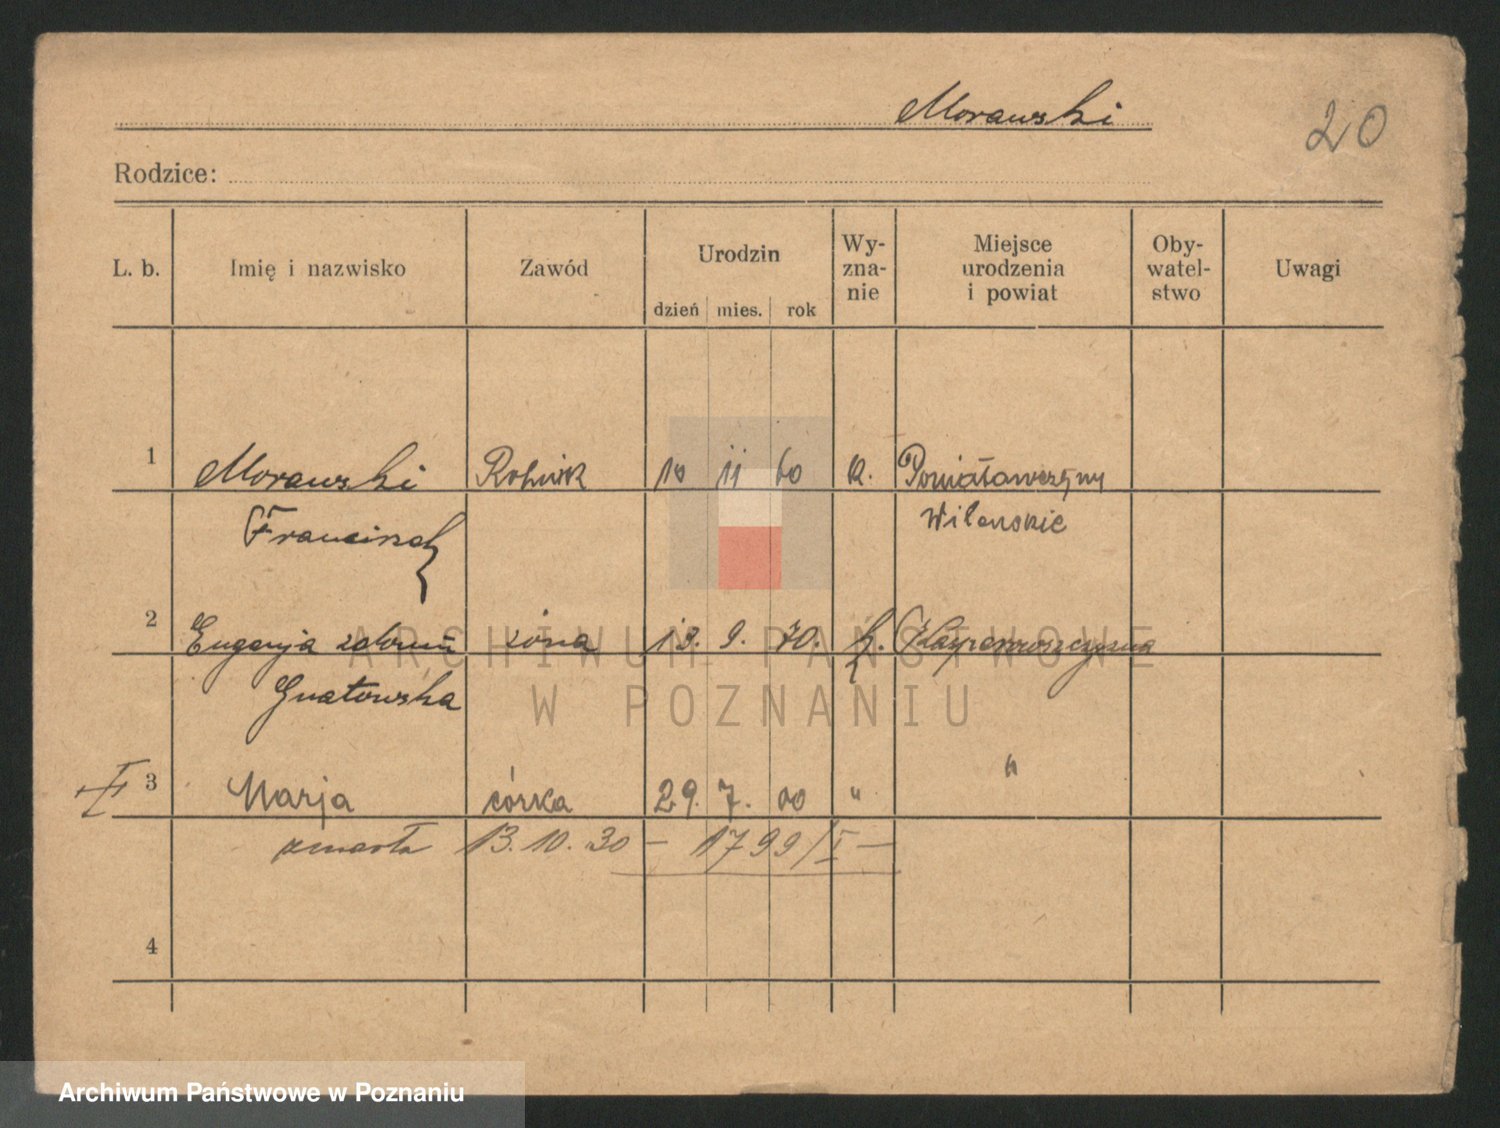 Morawski
20
Rodzice:
L. b. Imię i nazwisko Zawód Urodzin dzień mies. rok Wy-zna-nie Miejsce urodzenia i powiat Oby-watel-stwo Uwagi
1 Morawski Rolnik 10 11 60 R.
Franciszek Wilenskie
2 Eugenja żona 13. 9. 70.
Gnatowska
3 Marja córka 29. 7. 00 " "
zmarła 13.10.30 – 1799/I –
4
ARCHIWUM PAŃSTWOWE
W POZNANIU
Archiwum Państwowe w Poznaniu